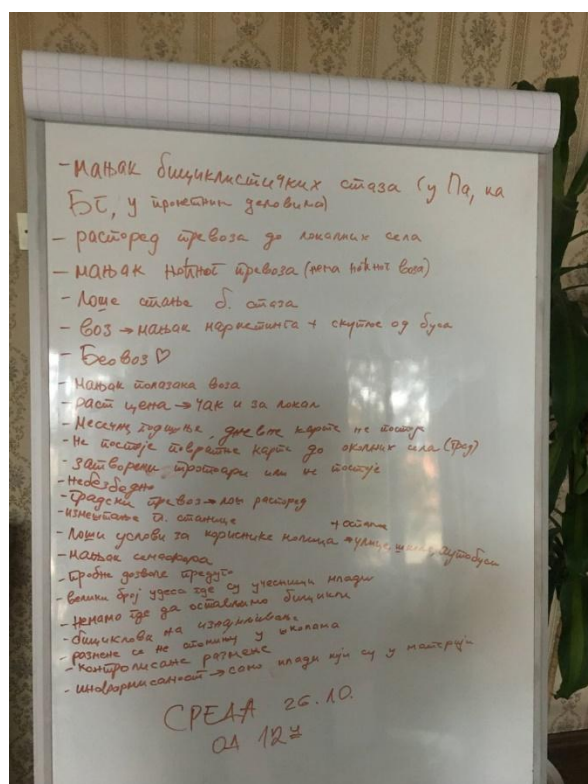 - мањак бициклистичких стаза (у Па, на
БС, у прометним деловима)
- распоред превоза до локалних села
- мањак ноћног превоза (нема ноћног воза)
- Лоше стање б. стаза
- воз → мањак маркетинга + скупље од буса
- Беовоз ♡
- мањак полазака воза
- раст цена → чак и за локал
- Месечне, годишње, дневне карте не постоје
- Не постоје повратне карте до околних села (Град)
- затворени тротоари или не постоје
- небезбедно
- градски превоз → лош распоред
- измештање гл. станице
+ остале
- Лоши услови за кориснике колица → улице, аутобуси
- мањак семафора
- пробне дозволе предуго
- велики број удеса где су учесници млади
- немамо где да оставимо бицикли
- бициклова на изнајмљивање
- размене се не спомињу у школама
- контролисане размене
- информисаност → само млади који су у материји
СРЕДА 26.10.
ОД 12ч